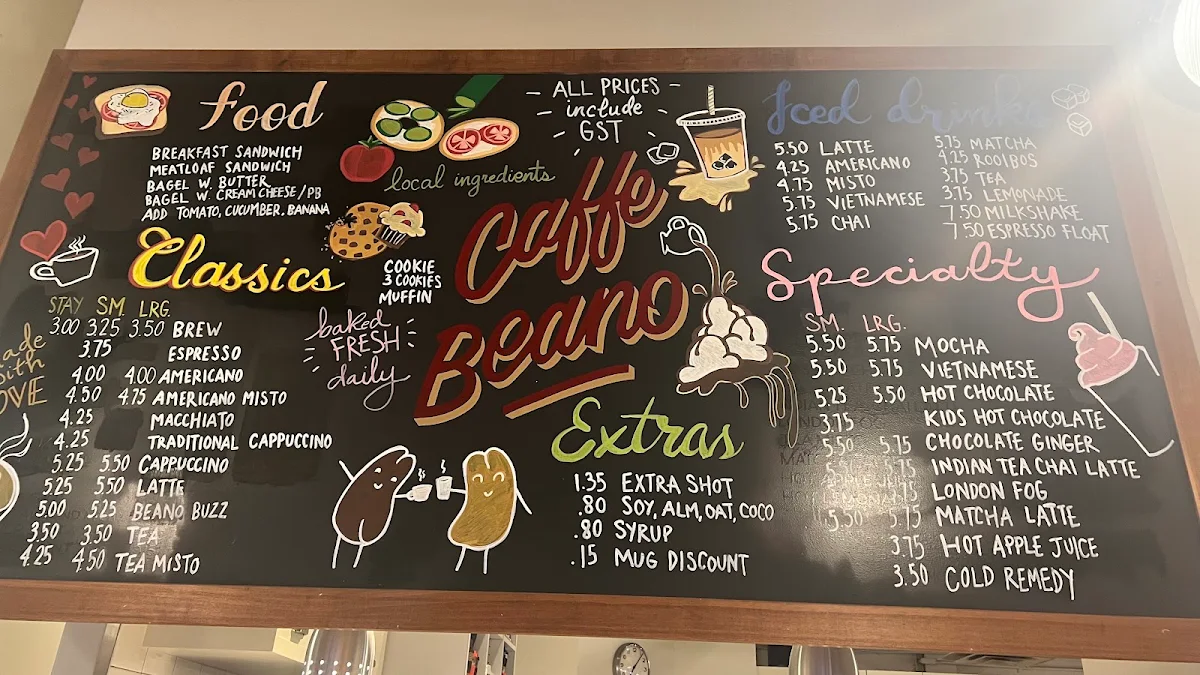 food
BREAKFAST SANDWICH
MEATLOAF SANDWICH
BAGEL W. BUTTER
BAGEL W. CREAM CHEESE/PB
ADD TOMATO, CUCUMBER, BANANA
local ingredients
- ALL PRICES -
include
GST
Caffe
Beano
Classics
STAY SM. LRG.
3.00 3.25 3.50 BREW
3.75 ESPRESSO
4.00 4.00 AMERICANO
4.50 4.75 AMERICANO MISTO
4.25 MACCHIATO
4.25 TRADITIONAL CAPPUCCINO
5.25 5.50 CAPPUCCINO
5.25 5.50 LATTE
5.00 5.25 BEANO BUZZ
3.50 3.50 TEA
4.25 4.50 TEA MISTO
COOKIE
3 COOKIES
MUFFIN
baked
FRESH
daily
Extras
1.35 EXTRA SHOT
.80 SOY, ALM, OAT, COCO
.80 SYRUP
.15 MUG DISCOUNT
Iced drinks
5.50 LATTE
4.25 AMERICANO
4.75 MISTO
5.75 VIETNAMESE
5.75 CHAI
5.75 MATCHA
4.25 ROOIBOS
3.75 TEA
3.75 LEMONADE
7.50 MILKSHAKE
7.50 ESPRESSO FLOAT
Specialty
SM. LRG.
5.50 5.75 MOCHA
5.50 5.75 VIETNAMESE
5.25 5.50 HOT CHOCOLATE
3.75 KIDS HOT CHOCOLATE
5.50 5.75 CHOCOLATE GINGER
5.50 5.75 INDIAN TEA CHAI LATTE
LONDON FOG
5.50 5.75 MATCHA LATTE
3.75 HOT APPLE JUICE
3.50 COLD REMEDY